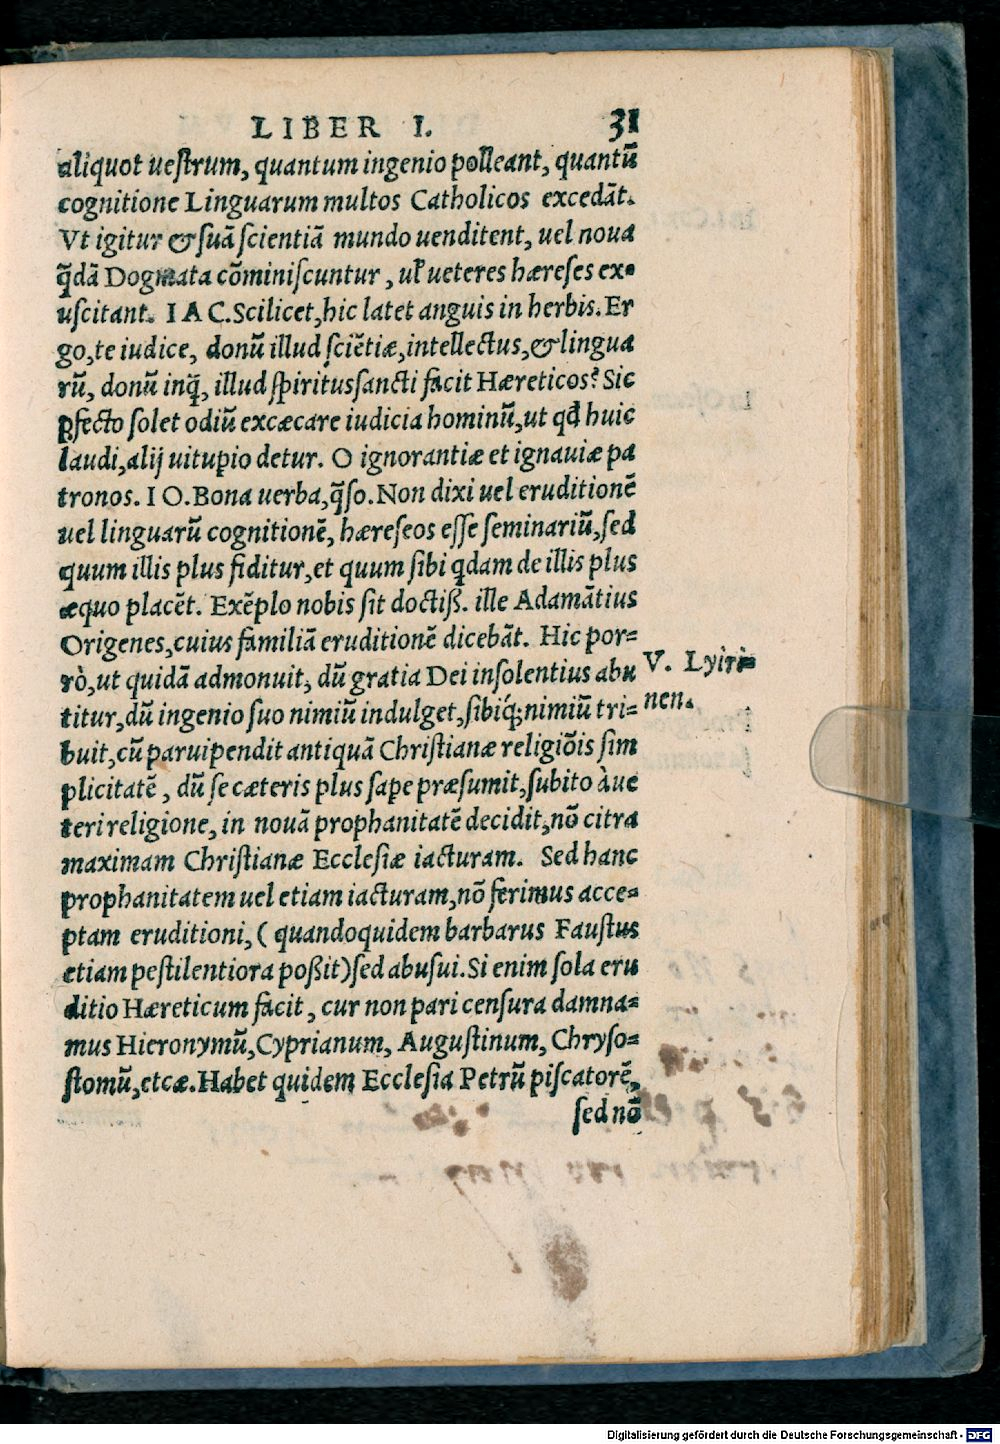 LIBER I. 31
aliquot uestrum, quantum ingenio polleant, quantũ
cognitione Linguarum multos Catholicos excedãt.
Vt igitur & suã scientiã mundo uenditent, uel noua
q̃dã Dogmata cõminiscuntur, ul̃ ueteres hæreses ex=
uscitant. I A C. Scilicet, hic latet anguis in herbis. Er
go, te iudice, donũ illud sciẽtiæ, intellectus, & lingua
rũ, donũ inq̃, illud spiritussancti facit Hæreticos? Sic
ꝓfecto solet odiũ excæcare iudicia hominũ, ut qd̃ huic
laudi, alij uituꝑio detur. O ignorantiæ et ignauiæ pa
tronos. I O. Bona uerba, q̃so. Non dixi uel eruditionẽ
uel linguarũ cognitionẽ, hæreseos esse seminariũ, sed
quum illis plus fiditur, et quum sibi q̃dam de illis plus
æquo placẽt. Exẽplo nobis sit doctiß. ille Adamãtius
Origenes, cuius familiã eruditionẽ dicebãt. Hic por=
rò, ut quidã admonuit, dũ gratia Dei insolentius abu
V. Lyiri=
titur, dũ ingenio suo nimiũ indulget, sibiq́; nimiũ tri=
nen.
buit, cũ paruipendit antiquã Christianæ religiõis sim
plicitatẽ, dũ se cæteris plus sape præsumit, subito à ue
teri religione, in nouã prophanitatẽ decidit, nõ citra
maximam Christianæ Ecclesiæ iacturam. Sed hanc
prophanitatem uel etiam iacturam, nõ ferimus acce=
ptam eruditioni, ( quandoquidem barbarus Faustus
etiam pestilentiora poßit) sed abusui. Si enim sola eru
ditio Hæreticum facit, cur non pari censura damna=
mus Hieronymũ, Cyprianum, Augustinum, Chryso=
stomũ, etcæ. Habet quidem Ecclesia Petrũ piscatorẽ,
sed nõ
Digitalisierung gefördert durch die Deutsche Forschungsgemeinschaft - DFG